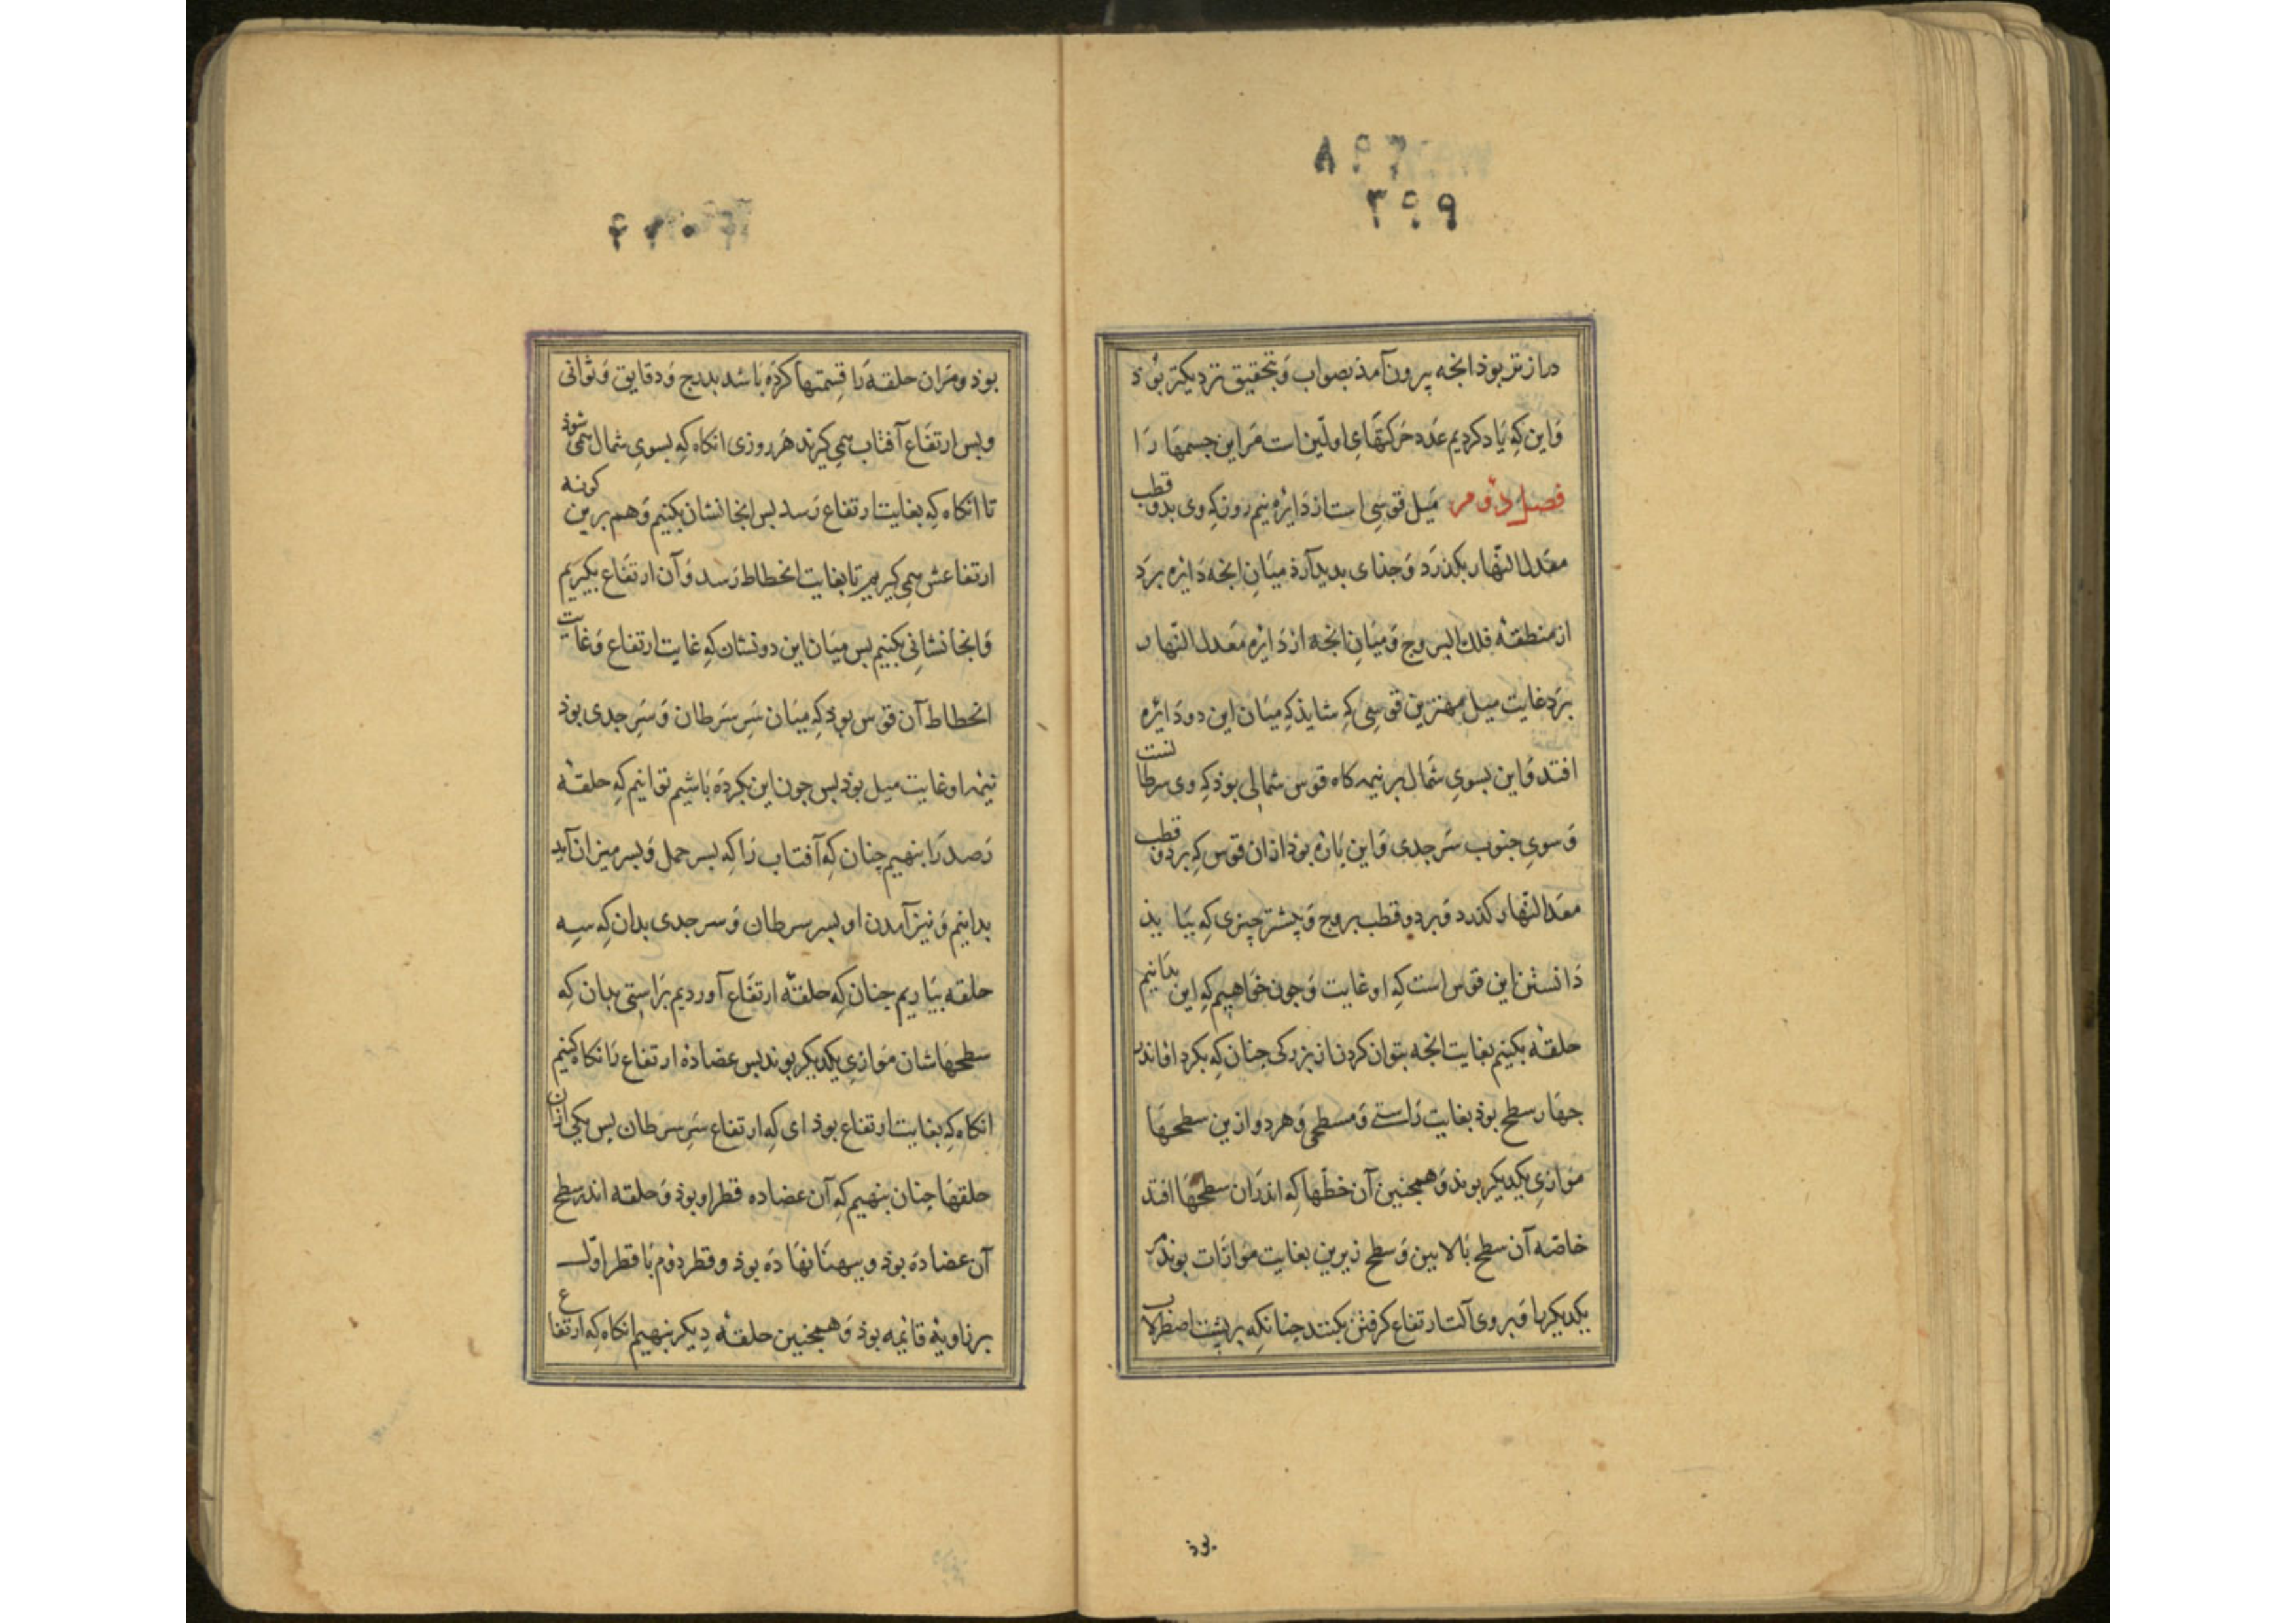 ۸۹۶
۳۹۹
درازتر بوذ انجه بیرون آمذ بصواب وَ بتحقیق نزدیکتر بُوَذ
وَ این که یاد کردیم عدد حرکتهاءِ اولین است مَر این جسمها را
فصل دوم میل قوسی است از دایره نیم روز که وی بدو قطب
معدل النّهار بکذرَد وَ جذای بدید آرذ میَانِ انجه دَایره برَد
از منطقهٔ فلك البروج وَ میَانِ انجه از دَایره مُعَدل النّهار
برَد غایت میل مهترین قوسی که شایذ که میَان این دو دَایره
افتد وَ این بسویِ شمَال بر نیمه کاه قوس شمالی بوذ که وی سرطا نست
وَ سویِ جنوب سَر جدی وَ این پَاره بوذ از ان قوس که بر دو قطب
معدل النّهار کذرد وَ بر دو قطب بروج وَ پیشتر چیزی که بیَا یذ
دَانستن این قوس است که او غایت وَ چون خوَاهیم که این بدَانیم
حلقهٔ بکنیم بغایت انجه بتوان کردن از بزرکی چنان که بکرد او اندر
جهَار سطح بوذ بغایت رَاستی وَ مسطحی وَ هر دو از ین سطحهَا
موَازیِ یکدیکر بوند وَ همچنین آن خطّها که اندرَان سطحهَا افتد
خاصّه آن سطح بَالایین وَ سطح زیرین بغایت موَازَات بوند مر
یکدیکر را وَ بر وی آلت ارتفاع کرفتن بکنند چنانکه بر پشت اصطرلاب
بوذ
بوذ و مَر ان حلقه را قِسمتها کرده بَاشد بدرج وَ دقایق وَ ثوانی
و بس ارتفَاع آفتاب همی کیرند هَر روزی انکاه که بسویِ شمال همی شوذ
تا انکاه که بغایت ارتفاع رَسد بس انجا نشان بکنیم وَ هم برین کونه
ارتفاعش همی کیریم تا بغایت انحطاط رَسد وَ آن ارتفَاع بکیریم
وَ انجا نشانی بکنیم بس میَان این دو نشان که غایت ارتفاع وَ غایت
انحطاط آن قوس بوذ که میَان سَرِ سَرطان وَ سَرِ جدی بوذ
نیمهٔ او غایت میل بوذ بس چون این بکردَه بَاشیم توانیم که حلقهٔ
رَصد رَا بنهیم چنان که آفتاب رَا که بسر حمل وَ بسر میزان آید
بدانیم وَ نیز آمدن او بسر سرطان وَ سر جدی بدان که سه
حلقه بیَاریم چنان که حلقهٔ ارتفَاع آوردیم برَاستی بدان که
سطحهَاشان موَازیِ یکدیکر بوند بس عضادهٔ ارتفاع رَا نکاه کنیم
انکاه که بغایت ارتفاع بوذ ای که ارتفاع سَرِ سرطان بس یکی ازان
حلقهَا چنان بنهیم که آن عضاده قطر او بوذ وَ حلقه اندر سطح
آن عضادَه بوذ و بپهنَا نهَادَه بوذ و قطر دوم بَا قطر اوّل
بر زاویهٔ قایمه بوذ وَ همچنین حلقهٔ دیکر بنهیم انکاه که ارتفا ع